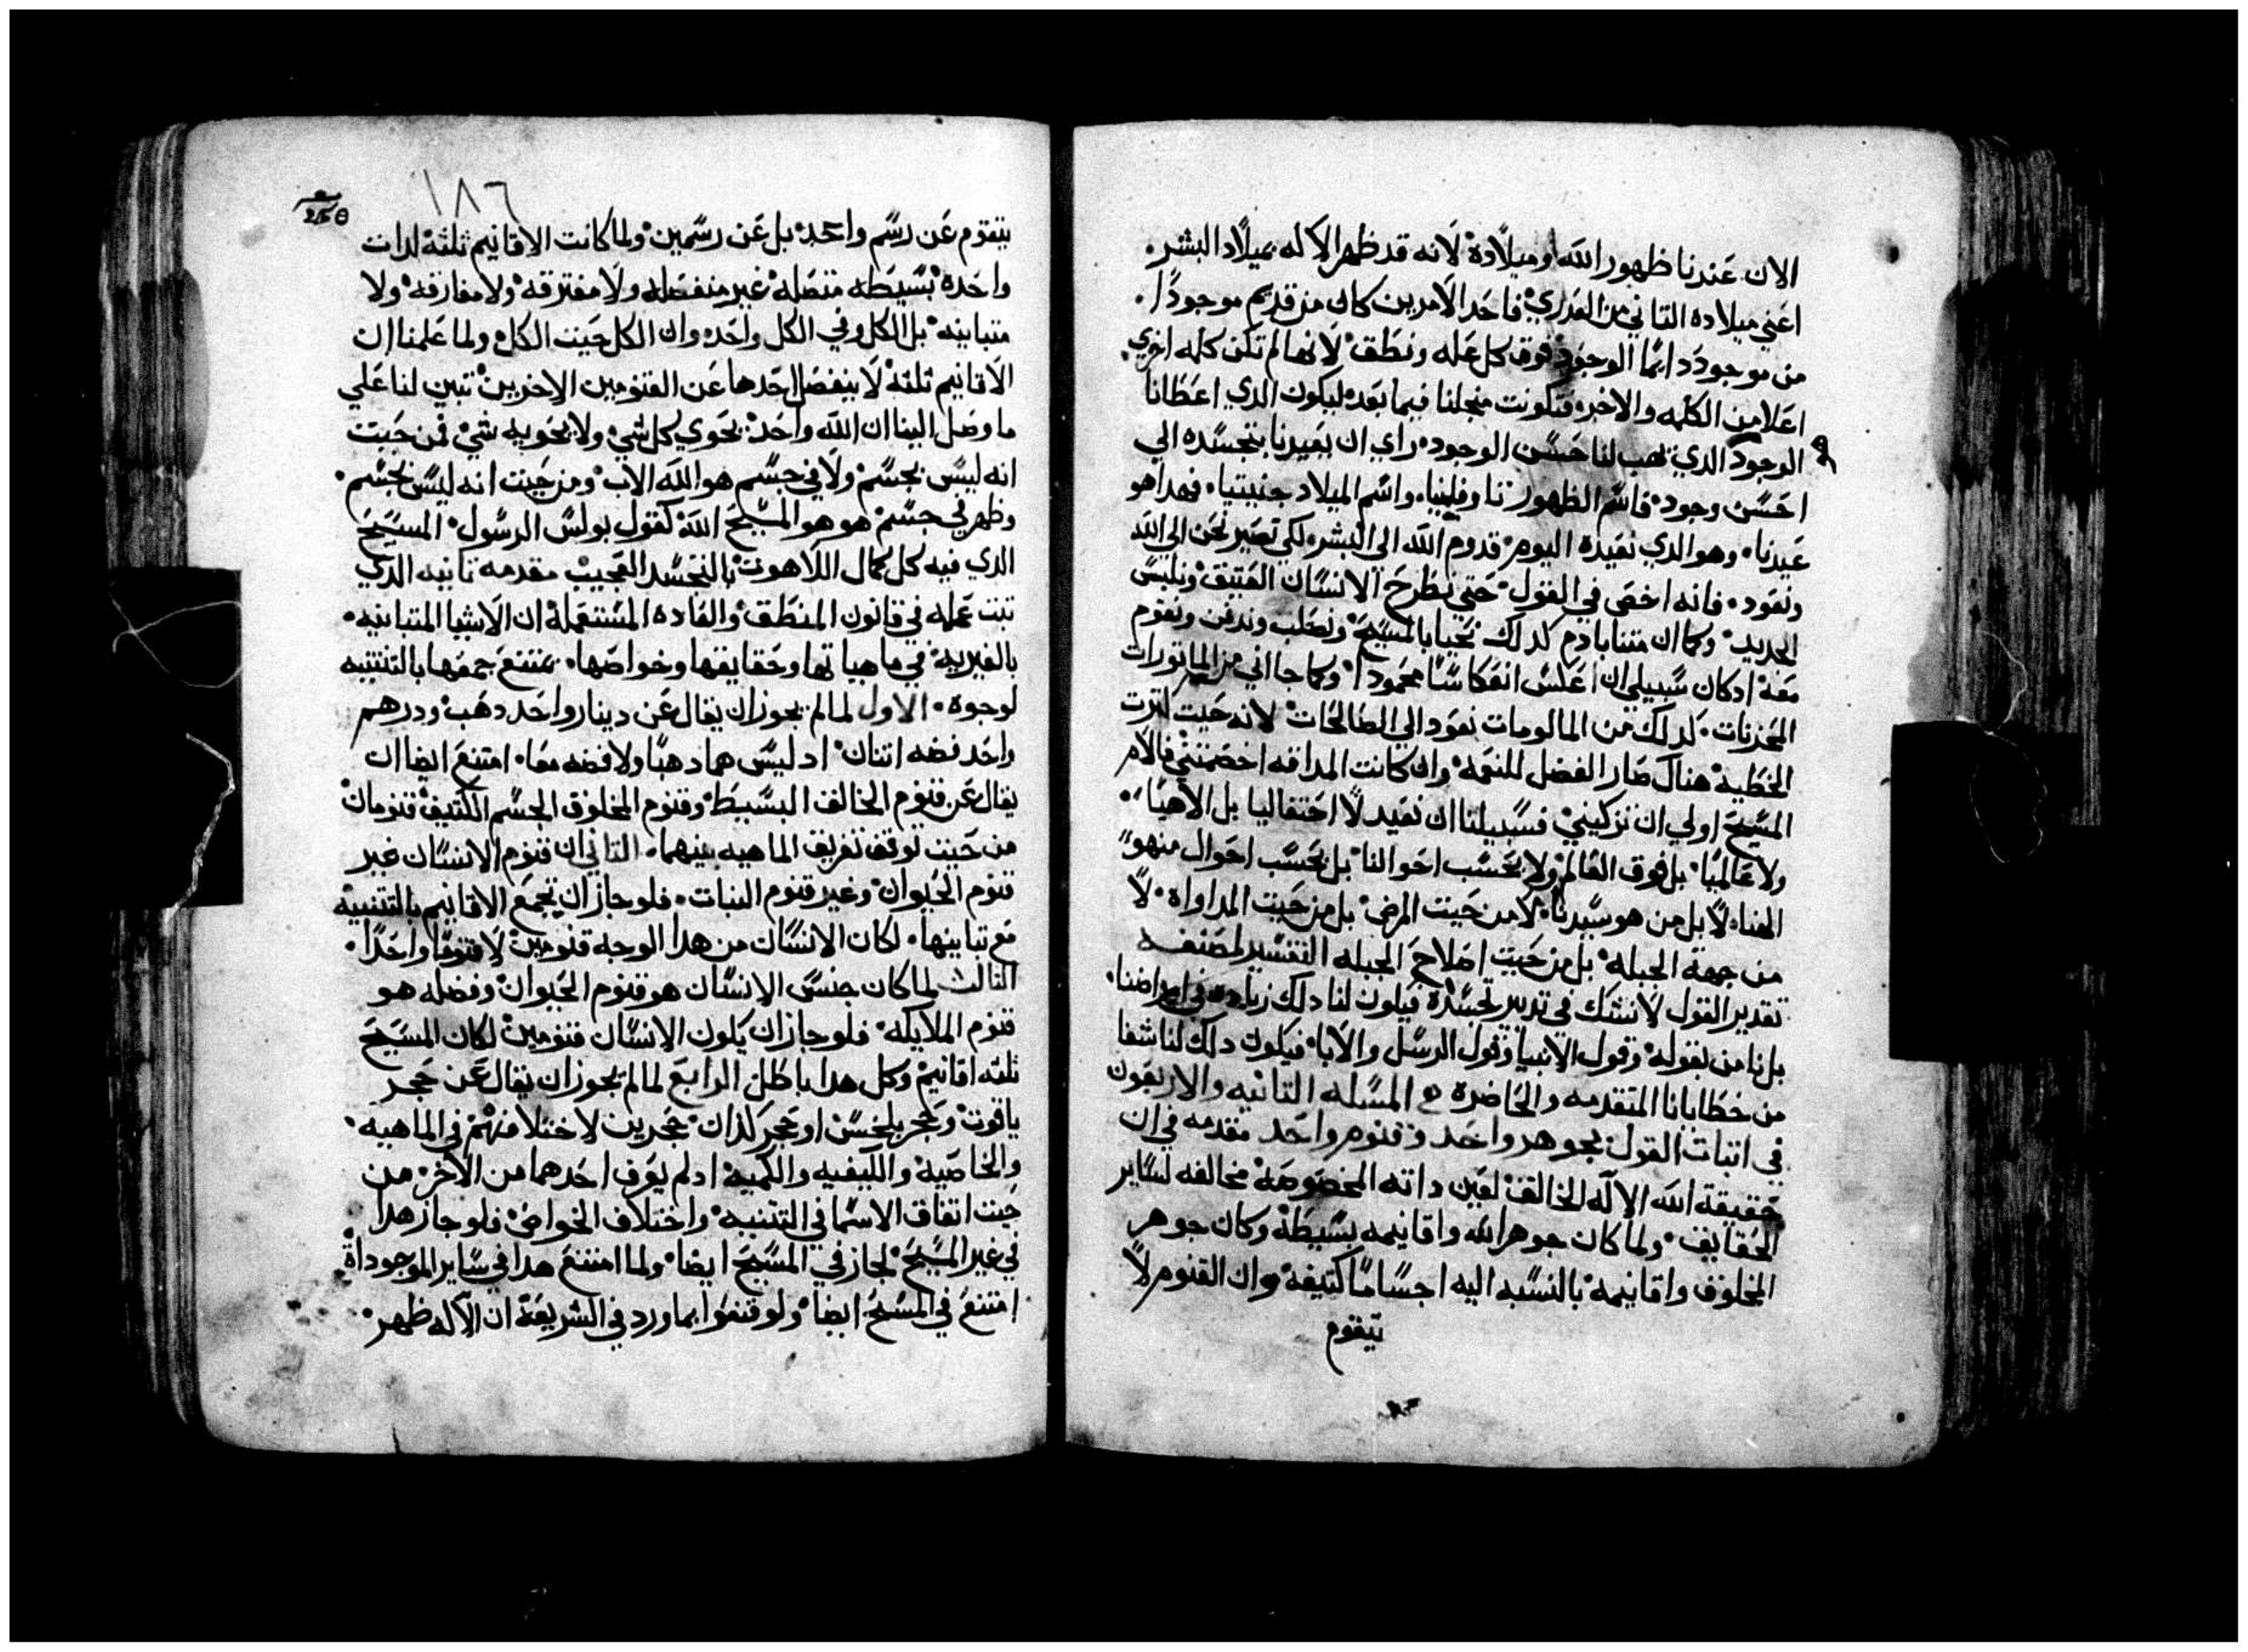 الان عندنا ظهور الله او ميلاده لانه قد ظهر الاله بميلاد البشر.
اعني ميلاده التاني من العدري فاحد الامرين كان من قديم موجودًا.
من موجود دايمًا الوجود فوق كل عله ونطق لانها لم تكن كلمه اخري
اعلا من الكلمه والاخر فتكونت منجلنا فيما بعد ليكون الدي اعطانا
الوجود الدي يهب لنا حسن الوجود راي ان يعيدنا بتجسده الي
احسن وجود فاسم الظهور تاوفينيا واسم الميلاد جنيتيا فهدا هو
عيدنا وهو الدي نعيده اليوم قدوم الله الي البشر لكي نصير نحن الي الله
ونعود فانه اخص في القول حتي نطرح الانسان العتيق ونلبس
الجديد وكما ان متنا بادم كدلك نحيا بالمسيح ونصلب وندفن ونقوم
معه ادكان سبيلي ان اعكس انعكاسًا محمودًا وكما جااني من الماتورات
المحزنات كدلك من المالومات نعود الي الصالحات لانه حيت كترت
الخطيه هناك صار الفضل للنعمه وان كانت المداقه اخصمتني فالام
المسيح اولي ان تزكيني فسبيلنا ان نعيد لا احتفاليا بل الاهيا
ولا عالميًا بل فوق العالم ولا بحسب احوالنا بل بحسب احوال منهو
الهنا لا بل من هو سيدنا لا من حيت المرض بل من حيت المداواه لا
من جهة الجبله بل من حيت اصلاح الجبله التفسير لمصنفه
تقدير القول لا نشك في تدبير تجسده فيكون لنا دلك زياده في امراضنا
بل نامن بقوله وقول الانبيا وقول الرسل والابا فيكون دلك لنا شفا
من خطايانا المتقدمه والحاضره المسله التانيه والاربعون
في اتبات القول بجوهر واحد وقنوم واحد مقدمه في ان
حقيقة الله الاله الخالق لعين داته المخصوصه مخالفه لساير
الحقايق ولما كان جوهر الله واقانيمه بسيطه وكان جوهر
المخلوق واقانيمه بالنسبه اليه اجسامًا كتيفه وان القنوم لا
يتقوم
١٨٦
يتقوم عن رسم واحد بل عن رسمين ولما كانت الاقانيم تلته لدات
واحده بسيطه متصله غير منفصله ولا مفترقه ولا مفارقه ولا
متباينه بل الكل في الكل واحد وان الكل حيت الكل ولما علمنا ان
الاقانيم تلته لا ينفصل احدها عن القنومين الاخرين تبين لنا علي
ما وصل الينا ان الله واحد يحوي كل شي ولا يحويه شي فمن حيت
انه ليس بجسم ولا في جسم هو الله الاب ومن حيت انه ليس بجسم
وظهر في جسم هو هو المسيح الله كقول بولس الرسول المسيح
الدي فيه كل كمال اللاهوت بالتجسد العجيب مقدمه تانيه الدي
تبت عمله في قانون المنطق والعاده المستعمله ان الاشيا المتباينه
بالغيريه في ماهياتها وحقايقها وخواصها يمتنع جمعها بالتتنيه
لوجوه الاول لما لم يجوز ان يقال عن دينار واحد دهب ودرهم
واحد فضه اتنان اد ليس هما دهبًا ولا فضه معًا امتنع ايضا ان
يقال عن قنوم الخالق البسيط وقنوم المخلوق الجسم الكتيف قنومان
من حيت توقف تفريق الماهيه بينهما التاني ان قنوم الانسان غير
قنوم الحيوان وغير قنوم النبات فلو جاز ان تجمع الاقانيم بالتتنيه
مع تباينها لكان الانسان من هدا الوجه قنومين لا قنومًا واحدًا
التالت لما كان جنس الانسان هو قنوم الحيوان وفصله هو
قنوم الملايكه فلو جاز ان يكون الانسان قنومين لكان المسيح
تلته اقانيم وكل هدا باطل الرابع لما لم يجوز ان يقال عن حجر
ياقوت وحجر بلخش او حجر لدان حجرين لاختلافهم في الماهيه
والخاصيه والكيفيه والكميه اد لم يعرف احدهما من الاخر من
حيت اتفاق الاسما في التتنيه واختلاف الخواص فلو جاز هدا
في غير المسيح لجاز في المسيح ايضا ولما امتنع هدا في ساير الموجوداة
امتنع في المسيح ايضا ولو قنعوا بما ورد في الشريعة ان الاله ظهر